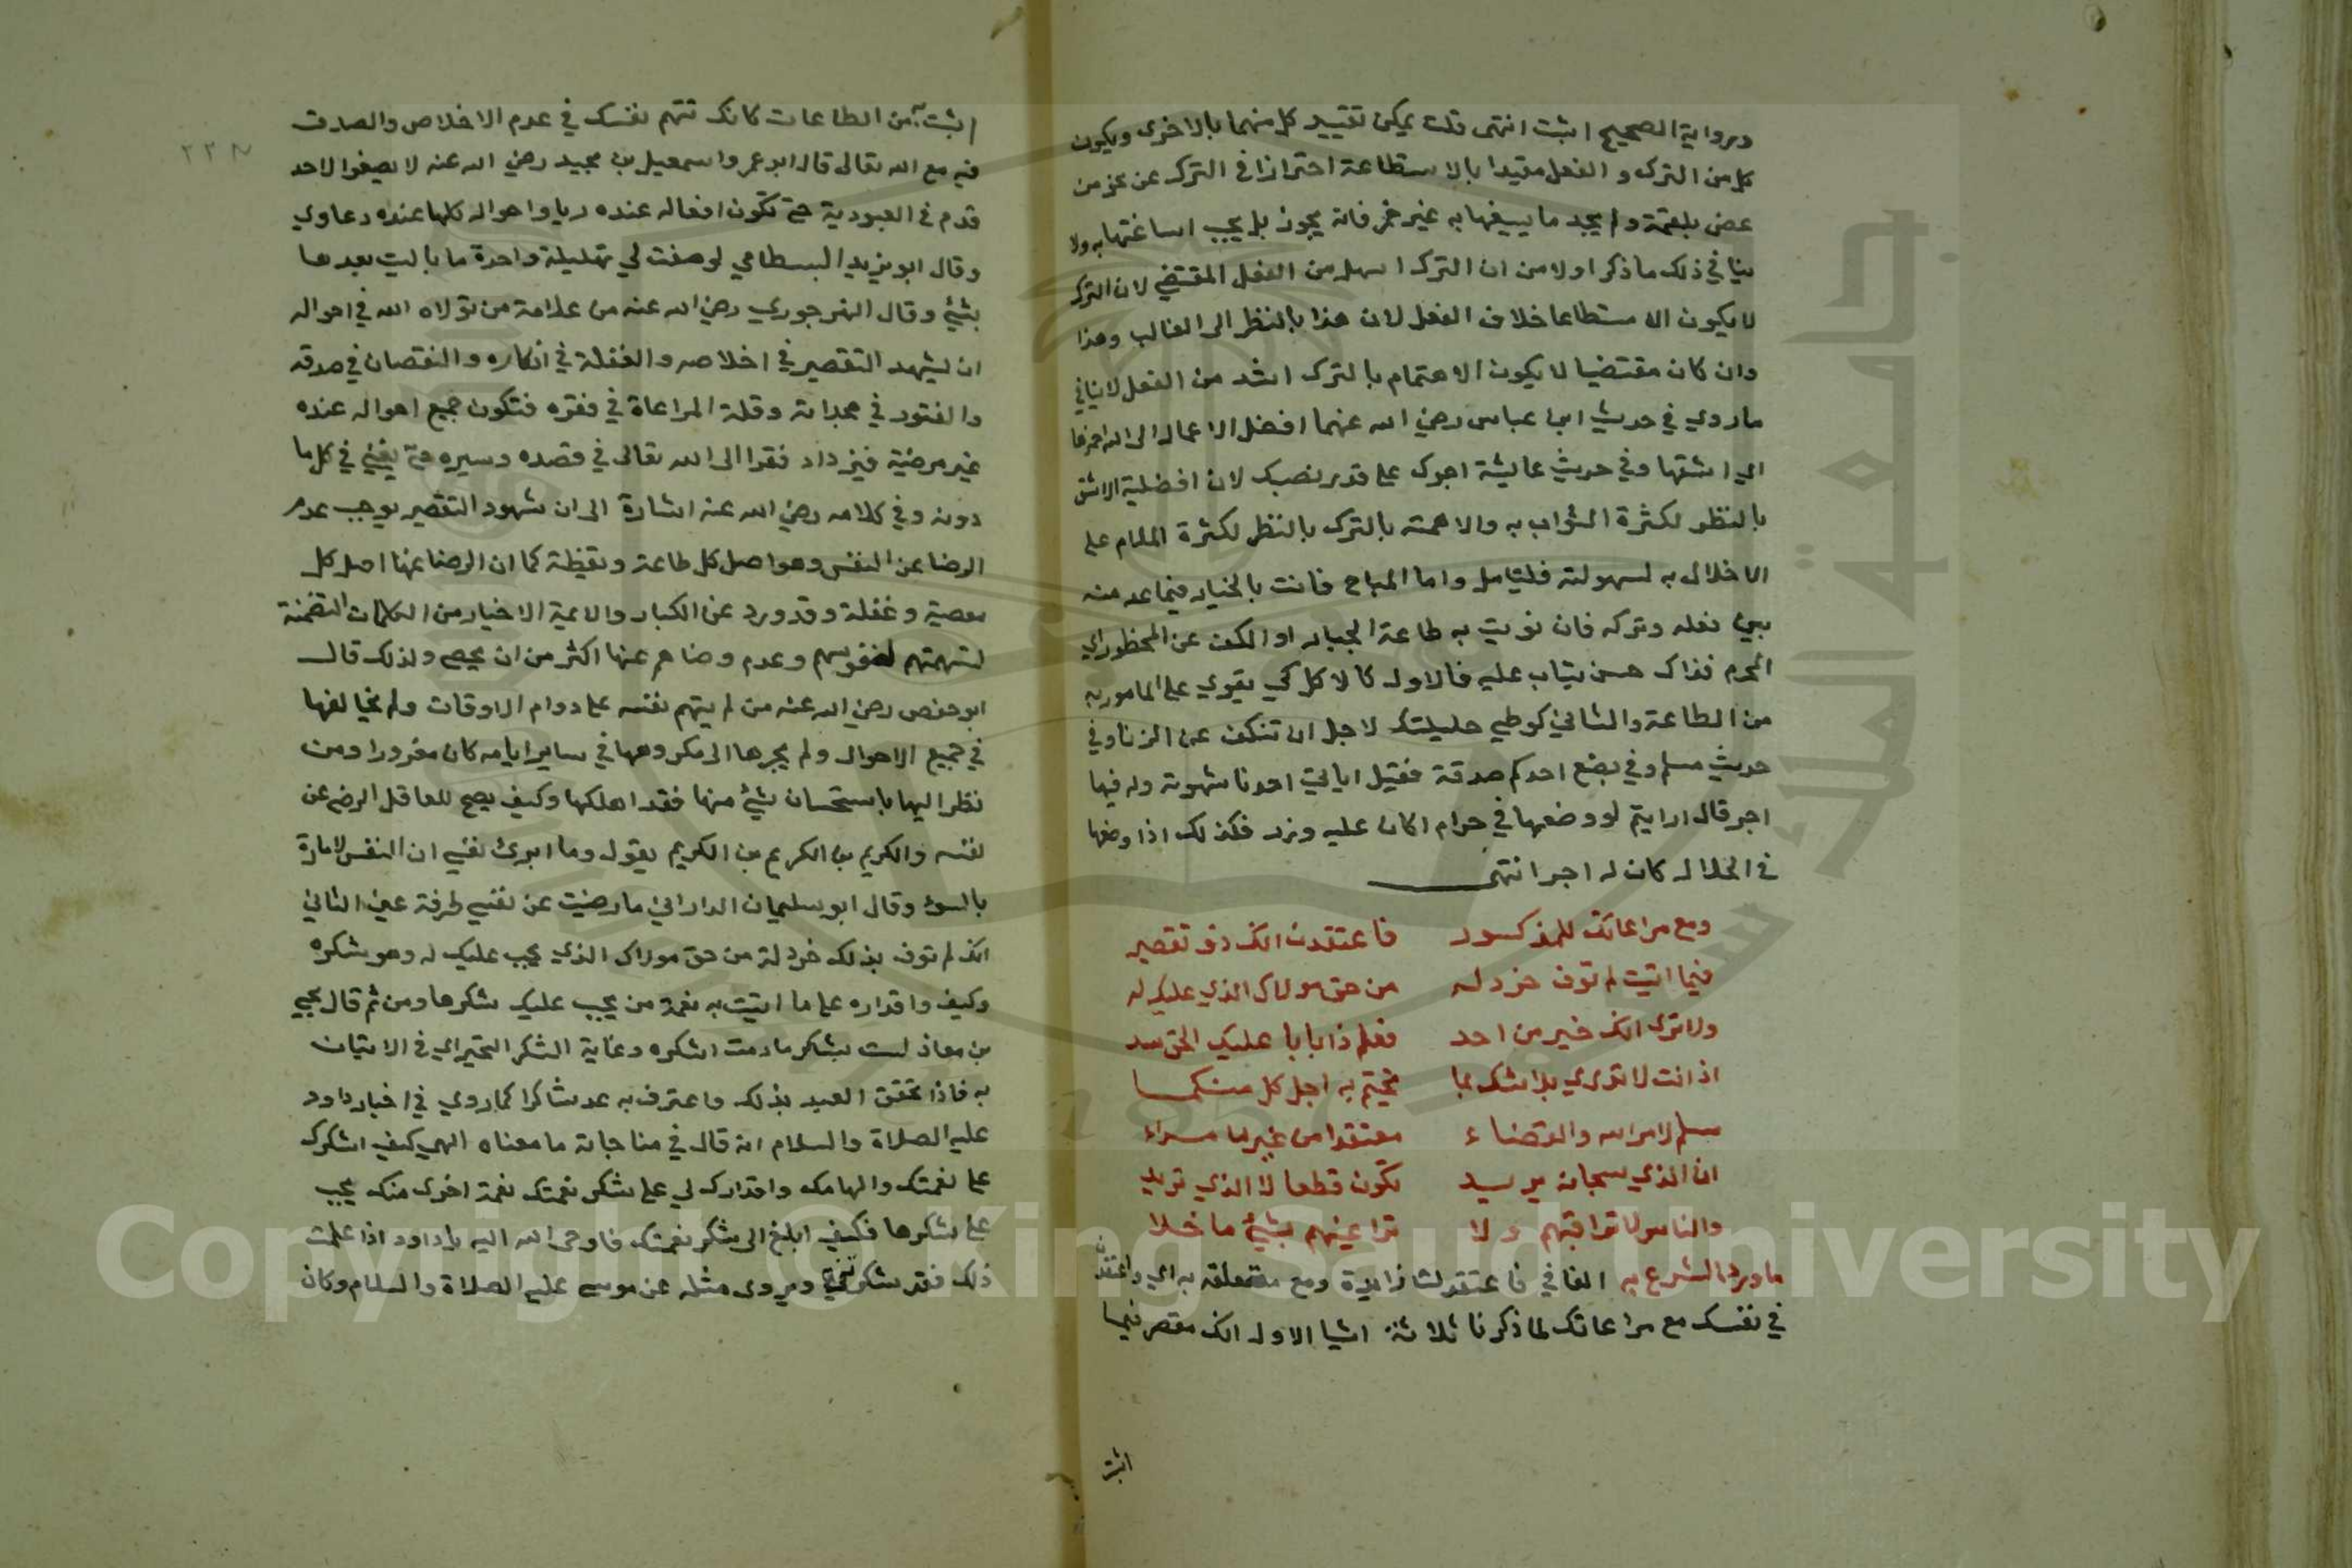 ورواية الصحيح اثبت انتهى قلت يمكن تقييد كل منهما بالاخرى ويكون
كل من الترك والفعل مقيدا بالاستطاعة احترازا في الترك عن نحو من
غص بلقمة ولم يجد ما يسيغها به غير خمر فانه يجوز بل يجب اساغتها به ولا
ينافي ذلك ما ذكر اولا من ان الترك اسهل من الفعل المقتضي لان الترك
لا يكون الا مستطاعا خلاف الفعل لان هذا بالنظر الى الغالب وهذا
وان كان مقتضيا لا يكون الاهتمام بالترك اشد من الفعل لا ينافي
ما روي في حديث ابن عباس رضي الله عنهما افضل الاعمال الى الله احمزها
اي اشقها وفي حديث عايشة اجرك على قدر نصبك لان افضلية الاشق
بالنظر لكثرة الثواب به والاهمية بالترك بالنظر لكثرة الملام على
الاخلال به لسهولته فليتامل واما المباح فانت بالخيار فيما عد منه
بين فعله وتركه فان نويت به طاعة الجبار او الكف عن المحظور اي
المحرم فذاك حسن يثاب عليه فالاول كالاكل كي يقوي على المامور به
من الطاعة والثاني كوطي حليلتك لاجل ان تنكف عن الزنا وفي
حديث مسلم وفي بضع احدكم صدقة فقيل اياتي احدنا شهوته وله فيها
اجر قال ارايتم لو وضعها في حرام اكان عليه وزر فكذلك اذا وضعها
في الحلال كان له اجر انتهى
ومع مراعاتك للمذكور فاعتقدن انك ذو تقصير
فيما اتيت لم توف خردله من حق مولاك الذي عليك له
ولا ترى انك خير من احد فعلم ذا بابا عليك الحق سد
اذ انت لا تدري بلا شك بما يختم به اجل كل منكما
مسلم لامر الله والقضاء معتقدا من غير ما مراء
ان الذي سبحانه يريد تكون قطعا لا الذي تريد
والناس لا تراقبنهم ولا تراعينهم بشيء ما خلا
ما ورد الشرع به الفا في فاعتقد لشا زايدة ومع متعلقة به اي واعتقدن
في نفسك مع مراعاتك لما ذكرنا ثلاثة اشيا الاول انك مقصر فيما
اتيت
٢٢٨
اتيت به من الطاعات كانك تتهم نفسك في عدم الاخلاص والصدق
فيه مع الله تعالى قال ابو عمرو اسمعيل بن مجيد رضي الله عنه لا يصفو لاحد
قدم في العبودية حتى تكون افعاله عنده ريا واحواله كلها عنده دعاوي
وقال ابو يزيد البسطامي لو صفت لي تهليلة واحدة ما باليت بعدها
بشيء وقال النهرجوري رضي الله عنه من علامة من تولاه الله في احواله
ان يشهد التقصير في اخلاصه والغفلة في اذكاره والنقصان في صدقه
والفتور في مجداته وقلة المراعاة في فقره فتكون جميع احواله عنده
غير مرضية فيزداد فقرا الى الله تعالى في قصده وسيره حتى يفنى في كل ما
دونه وفي كلامه رضي الله عنه اشارة الى ان شهود التقصير يوجب عدم
الرضا عن النفس وهو اصل كل طاعة ويقظة كما ان الرضا عنها اصل كل
معصية وغفلة وقد ورد عن الكبار والايمة الاخيار من الكلمات المتضمنة
لتهمتهم لنفوسهم وعدم رضاهم عنها اكثر من ان يحصى ولذلك قال
ابو حفص رضي الله عنه من لم يتهم نفسه على دوام الاوقات ولم يخالفها
في جميع الاحوال ولم يجرها الى مكروهها في ساير ايامه كان مغرورا ومن
نظر اليها باستحسان شيء منها فقد اهلكها وكيف يصح للعاقل الرضى عن
نفسه والكريم بن الكريم بن الكريم يقول وما ابرئ نفسي ان النفس لامارة
بالسوء وقال ابو سليمان الداراني ما رضيت عن نفسي طرفة عين الثاني
انك لم توف بذلك خردلة من حق مولاك الذي يجب عليك له وهو شكره
وكيف واقداره على ما اتيت به نعمة من يجب عليك شكرها ومن ثم قال يحيى
بن معاذ لست بشاكر ما دمت اشكره وغاية الشكر التحير اي في الاتيان
به فاذا تحقق العبد بذلك واعترف به عد شاكرا كما روي في اخبار داود
عليه الصلاة والسلام انه قال في مناجاته ما معناه الهي كيف اشكرك
على نعمتك والهامك واقدارك لي على شكر نعمتك نعمة اخرى منك يجب
علي شكرها فكيف ابلغ الى شكر نعمتك فاوحى الله اليه يا داود اذا علمت
ذلك فقد شكرتني ويروى مثله عن موسى عليه الصلاة والسلام وكان
Copyright © King Saud University